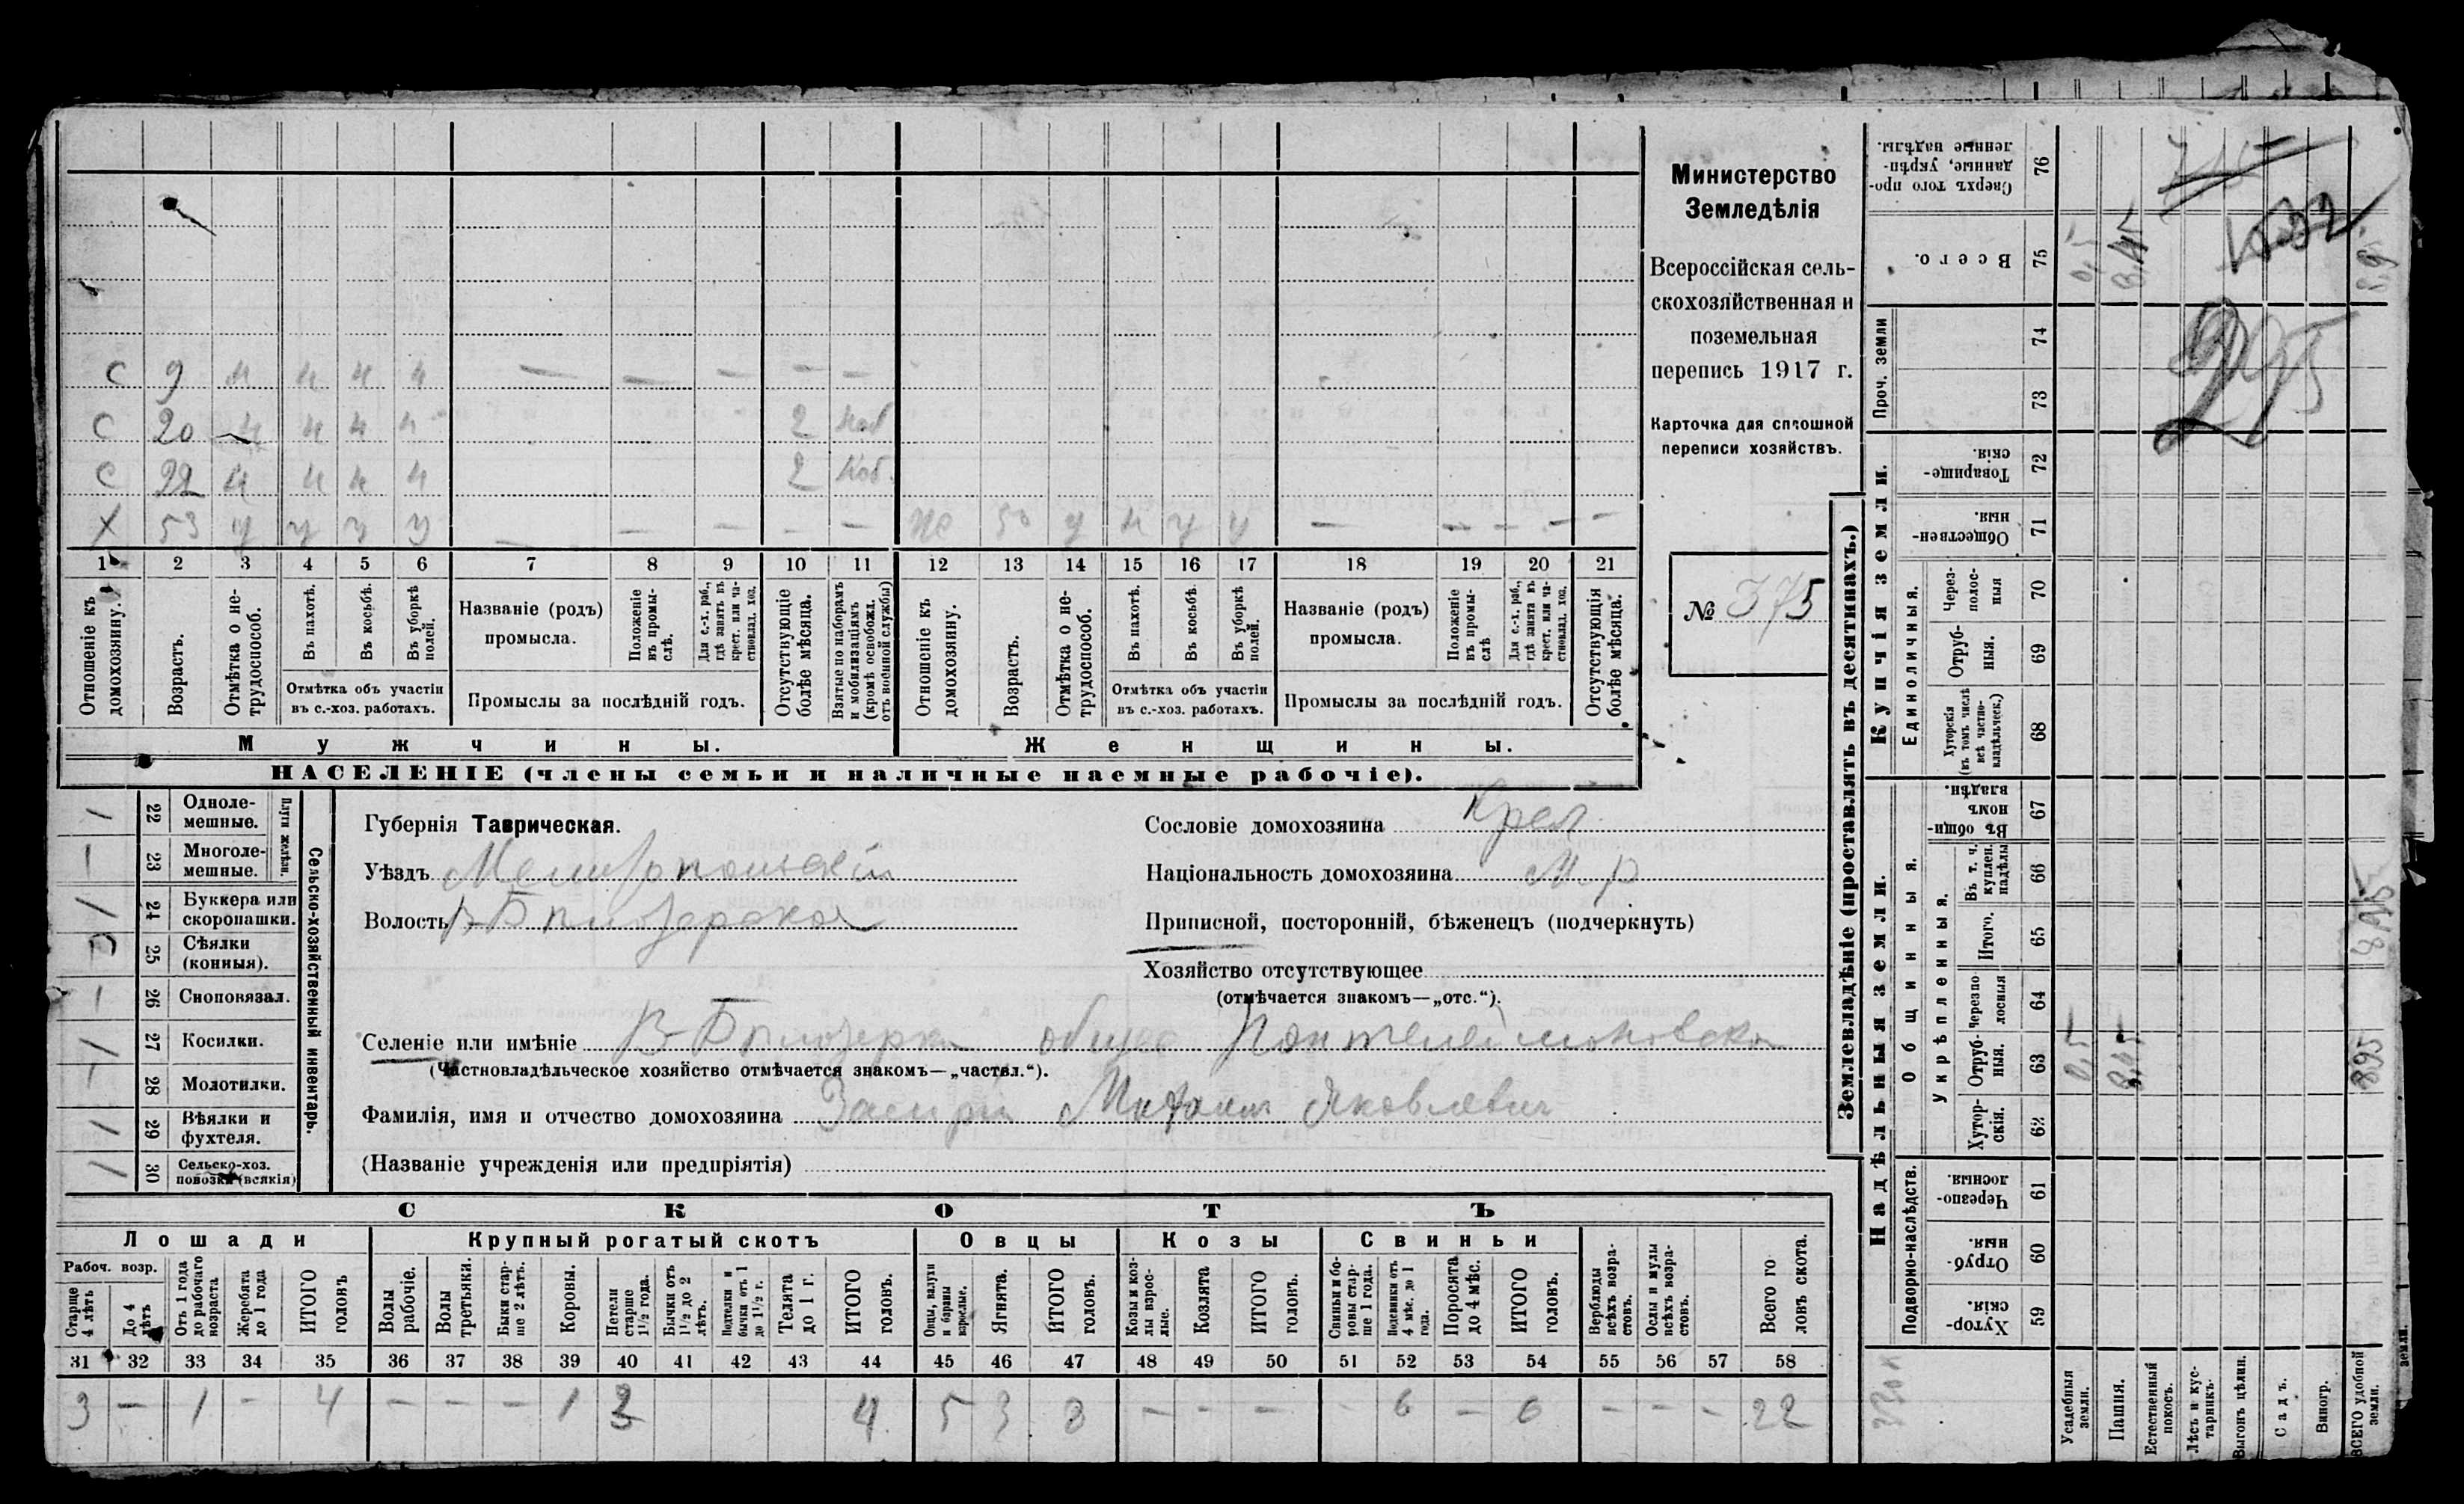 Министерство
Земледѣлія
Всероссійская сель-
скохозяйственная и
поземельная
перепись 1917 г.
Карточка для сплошной
переписи хозяйствъ.
№ 375
С 9 н н н н — — — — —
С 20 н н н н 2 моб
С 22 н н н н 2 моб.
Х 53 у у у у — — — — — же 50 у н у у — — — — —
1 2 3 4 5 6 7 8 9 10 11 12 13 14 15 16 17 18 19 20 21
Отношеніе къ домохозяину.
Возрастъ.
Отмѣтка о не-трудоспособ.
Въ пахотѣ.
Въ косьбѣ.
Въ уборкѣ полей.
Отмѣтка объ участіи
въ с.-хоз. работахъ.
Названіе (родъ)
промысла.
Положеніе въ промы-слѣ.
Для с.-х. раб., гдѣ занятъ въ крест. или ча-стновлад. хоз.
Промыслы за послѣдній годъ.
Отсутствующіе болѣе мѣсяца.
Взятые по наборамъ и мобилизаціямъ (кромѣ освобожд. отъ военной службы)
Отношеніе къ домохозяину.
Возрастъ.
Отмѣтка о не-трудоспособ.
Въ пахотѣ.
Въ косьбѣ.
Въ уборкѣ полей.
Отмѣтка объ участіи
въ с.-хоз. работахъ.
Названіе (родъ)
промысла.
Положеніе въ промы-слѣ
Для с.-х. раб., гдѣ занята въ крест. или ча-стновлад. хоз.
Промыслы за послѣдній годъ.
Отсутствующія болѣе мѣсяца.
Мужчины.
Женщины.
НАСЕЛЕНІЕ (члены семьи и наличные наемные рабочіе).
Сельско-хозяйственный инвентарь.
Плуги желѣзн.
22 Одноле-мешные.
23 Многоле-мешные.
24 Буккера или скоропашки.
25 Сѣялки (конныя).
26 Сноповязал.
27 Косилки.
28 Молотилки.
29 Вѣялки и фухтеля.
30 Сельско-хоз. повозки (всякія)
Губернія Таврическая.
Уѣздъ Мелитопольскій
Волость В-Бѣлозерская
Сословіе домохозяина Крест
Національность домохозяина М.р
Приписной, посторонній, бѣженецъ (подчеркнуть)
Хозяйство отсутствующее
(отмѣчается знакомъ—„отс.“).
Селеніе или имѣніе В-Бѣлозерка общес Пантелеймоновско
(Частновладѣльческое хозяйство отмѣчается знакомъ—„частвл.“).
Фамилія, имя и отчество домохозяина Михаил Яковлевич
(Названіе учрежденія или предпріятія)
СКОТЪ
Лошади
Крупный рогатый скотъ
Овцы
Козы
Свиньи
Рабоч. возр.
Старше 4 лѣтъ
До 4 лѣтъ
Отъ 1 года до рабочаго возраста
Жеребята до 1 года
ИТОГО головъ
Волы рабочіе.
Волы третьяки.
Быки стар-ше 2 лѣтъ.
Коровы.
Нетели старше 1½ года.
Бычки отъ 1½ до 2 лѣтъ.
Подтелки и бычки отъ 1 до 1½ г.
Телята до 1 г.
ИТОГО головъ.
Овцы, валухи и бараны взрослые.
Ягнята.
ИТОГО головъ.
Козы и коз-лы взрос-лые.
Козлята
ИТОГО головъ.
Свиньи и бо-ровы стар-ше 1 года.
Подсвинки отъ 4 мѣс. до 1 года.
Поросята до 4 мѣс.
ИТОГО головъ.
Верблюды всѣхъ возра-стовъ.
Ослы и мулы всѣхъ возра-стовъ.
Всего го ловъ скота.
31 32 33 34 35 36 37 38 39 40 41 42 43 44 45 46 47 48 49 50 51 52 53 54 55 56 57 58
3 — 1 - 4 — — — 1 3 4 5 3 8 — — — - 6 — 6 — — — 22
Землевладѣніе (проставлять въ десятинахъ.)
Надѣльныя земли.
Купчія земли.
Проч. земли
Подворно-наслѣдств.
Общинныя.
Укрѣпленныя.
Единоличныя.
76 Сверхъ того про-данные, укрѣп-ленные надѣлы.
75 Всего. 0,5 8,45 8,95
74
73
72 Товарище-скія.
71 Обществен-ныя.
70 Через-полос-ныя
69 Отруб-ныя.
68 Хуторскія (въ томъ числѣ всѣ частно-владѣльческ.)
67 Въ общи-номъ владѣн.
66 Въ т. ч. куплен. надѣлы
65 Итого.
64 Черезпо-лосныя
63 Отруб-ныя. 0,5 8,45 8,95
62 Хутор-скія.
61 Черезпо-лосныя.
60 Отруб-ныя.
59 Хутор-скія.
Усадебныя земли.
Пашня.
Естественный покосъ.
Лѣсъ и кус-тарникъ.
Выгонъ цѣлин.
Садъ.
Виногр.
ВСЕГО удобной земли.